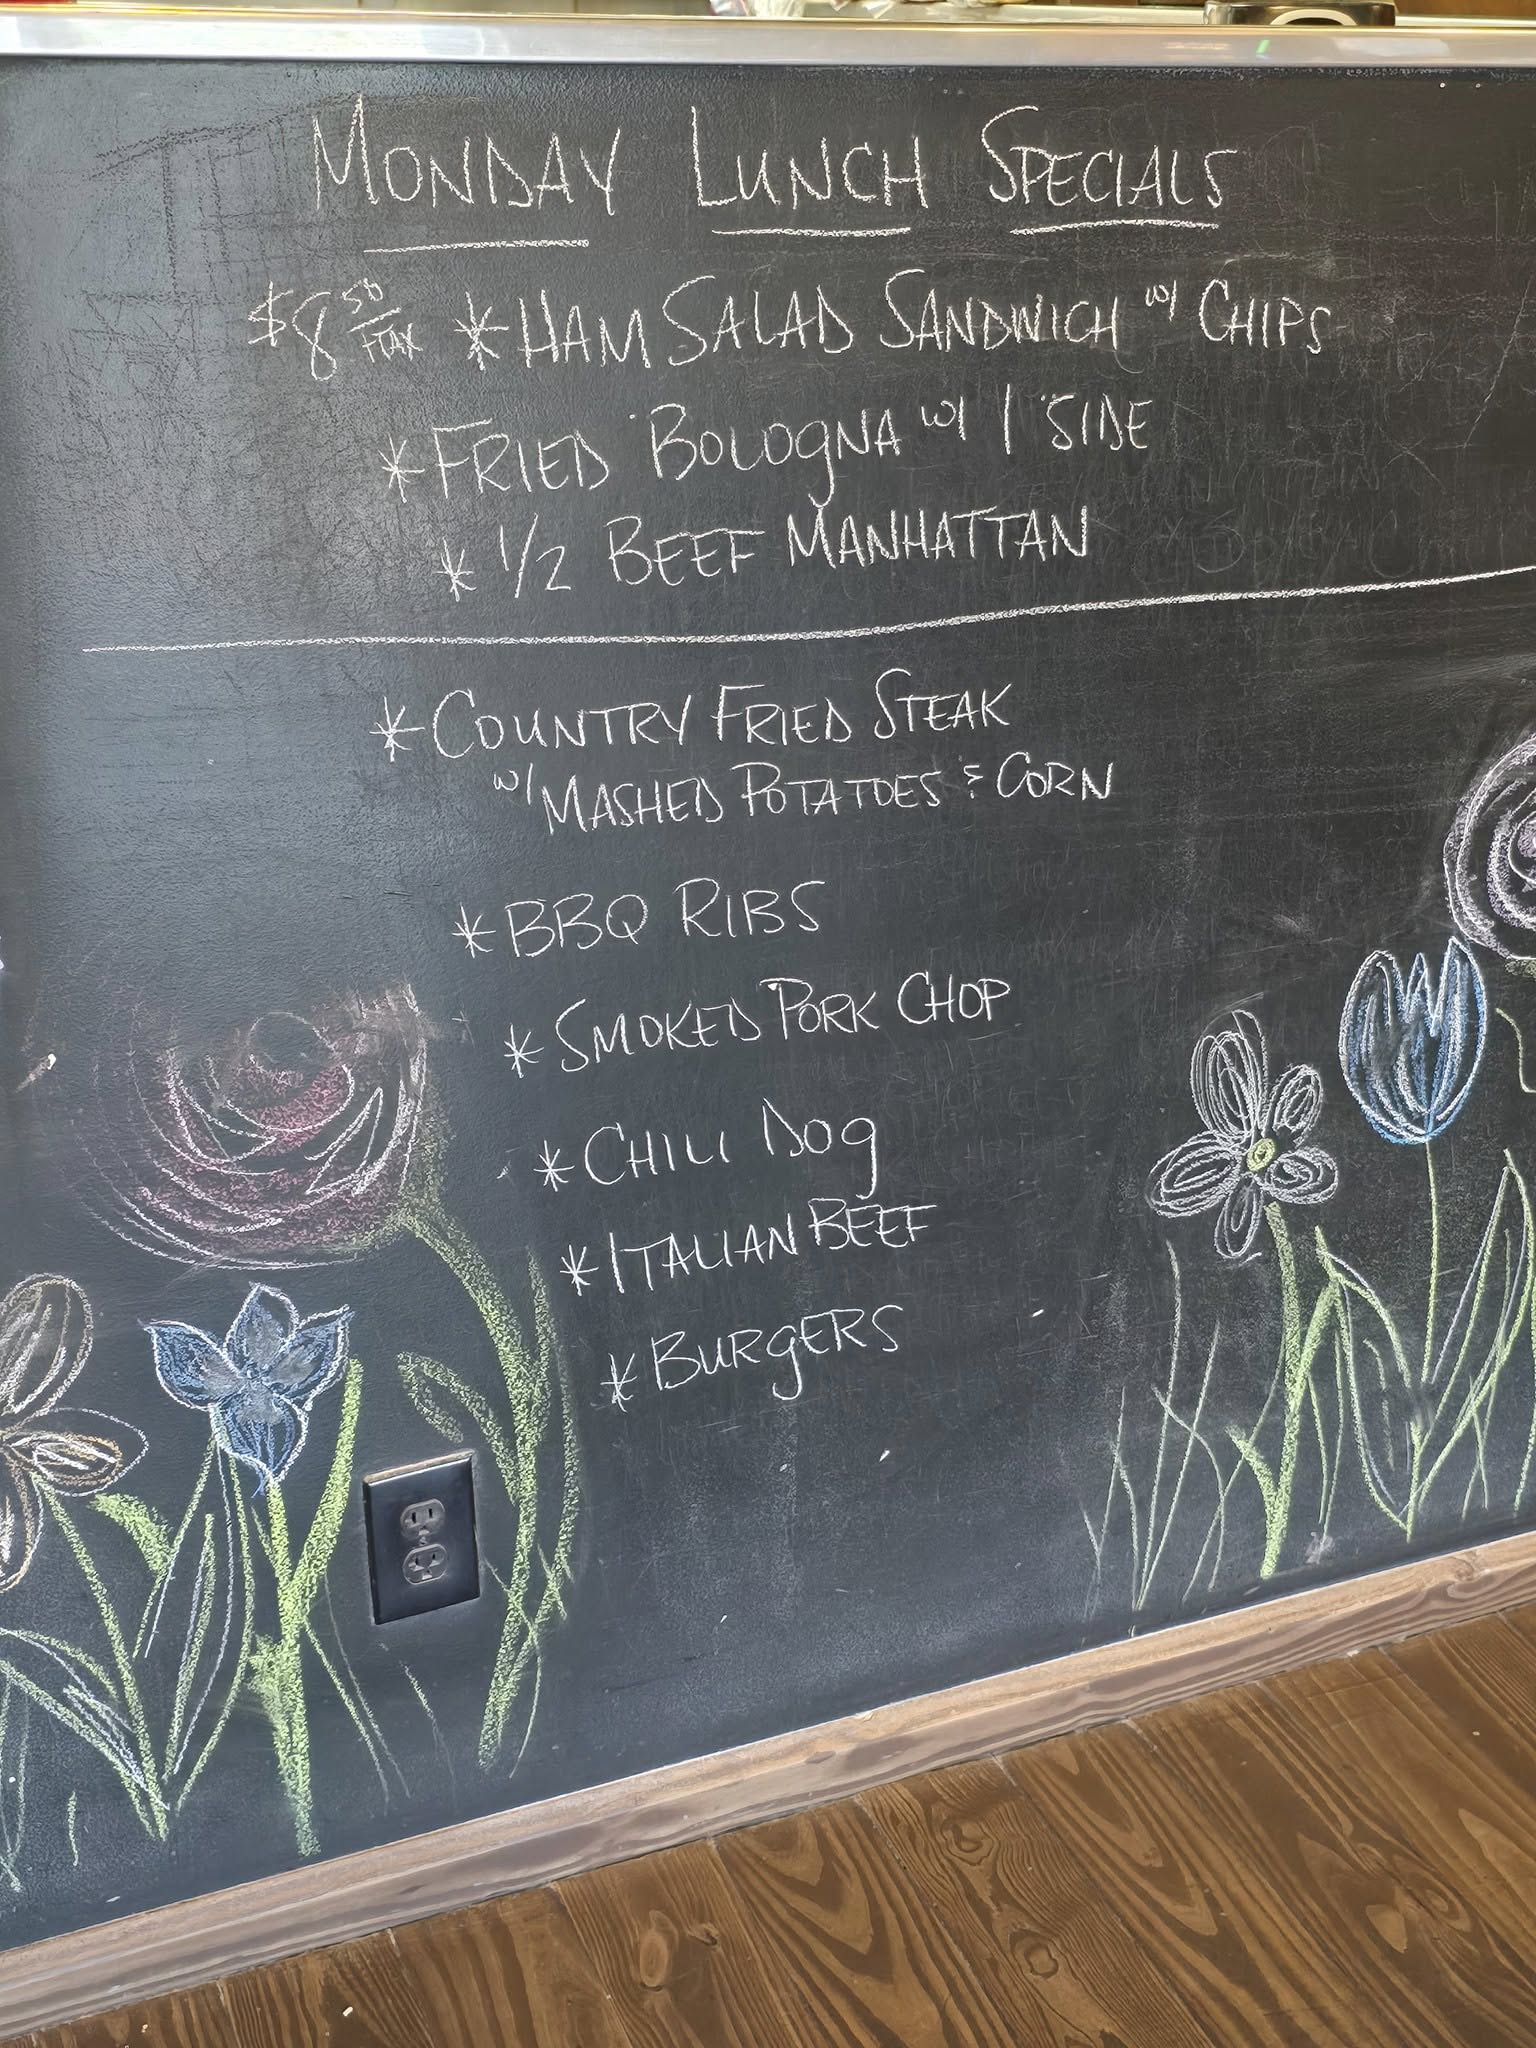 MONDAY LUNCH SPECIALS
$8 50 +TAX *HAM SALAD SANDWICH w/ CHIPS
*FRIED BOLOGNA w/ 1 SIDE
* 1/2 BEEF MANHATTAN
*COUNTRY FRIED STEAK
w/ MASHED POTATOES & CORN
*BBQ RIBS
*SMOKED PORK CHOP
*CHILI DOG
*ITALIAN BEEF
*BURGERS